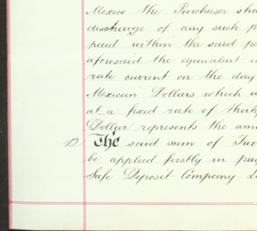 Mexico the Purchaser sha
discharge of any such p
paid within the said pe
aforesaid the equivalent i
rate current on the day
Mexican Dollars which w
at a fixed rate of thirty
Dollar represents the am
The said sum of Two
be applied firstly in pay
Safe Deposit Company L